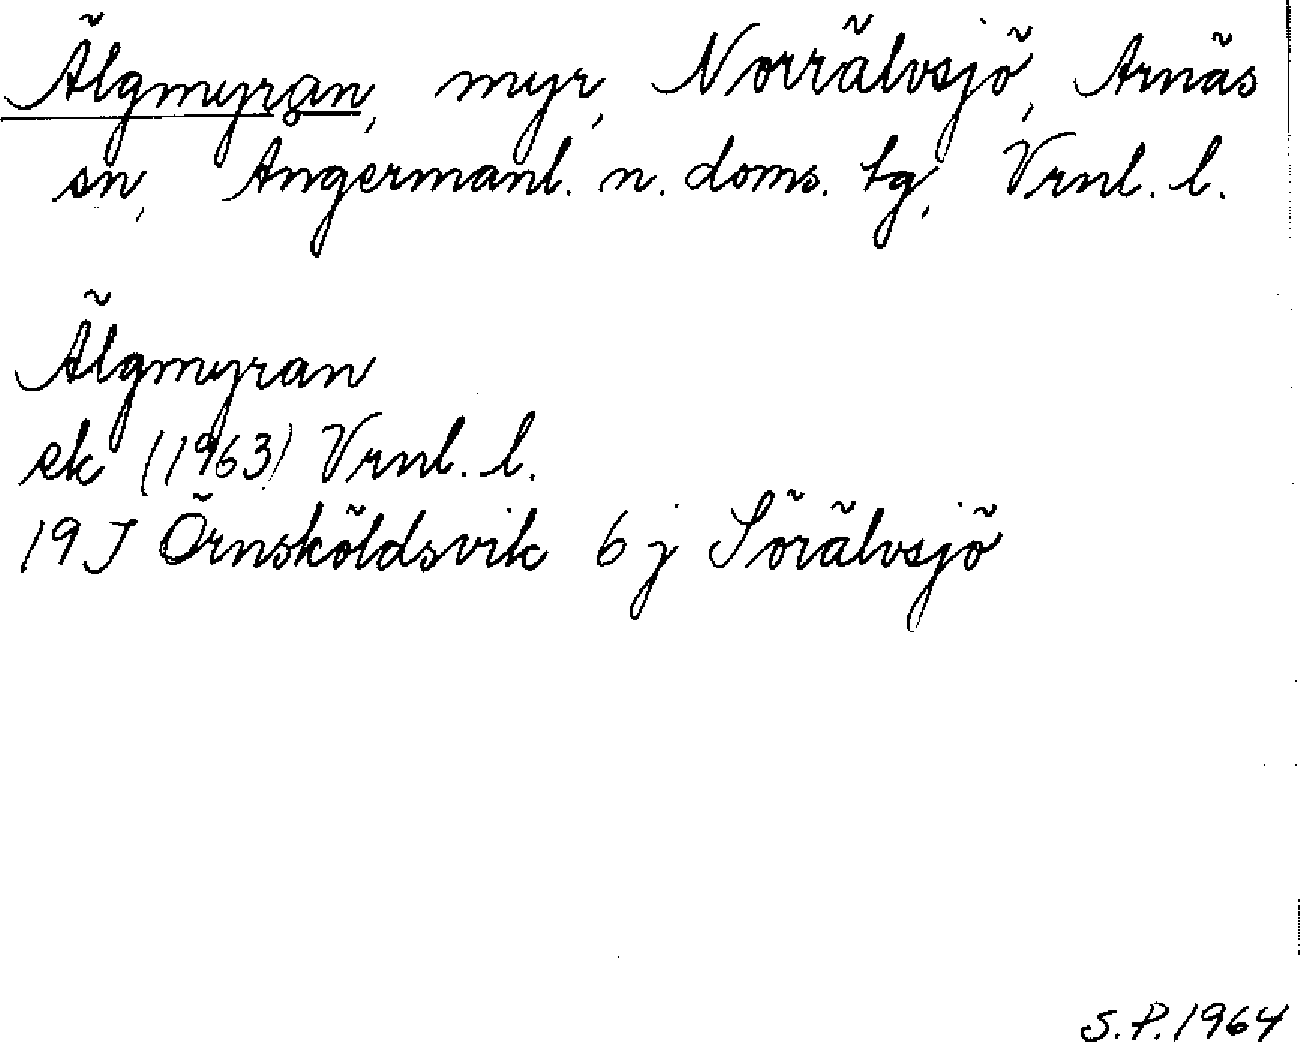 Älgmyran, myr, Norrälvsjö, Arnäs
sn, Ångermanl. n. doms. tg, Vrnl. l.
Älgmyran
ek (1963) Vrnl. l.
19J Örnsköldsvik 6 j Sörälvsjö
S.P. 1964